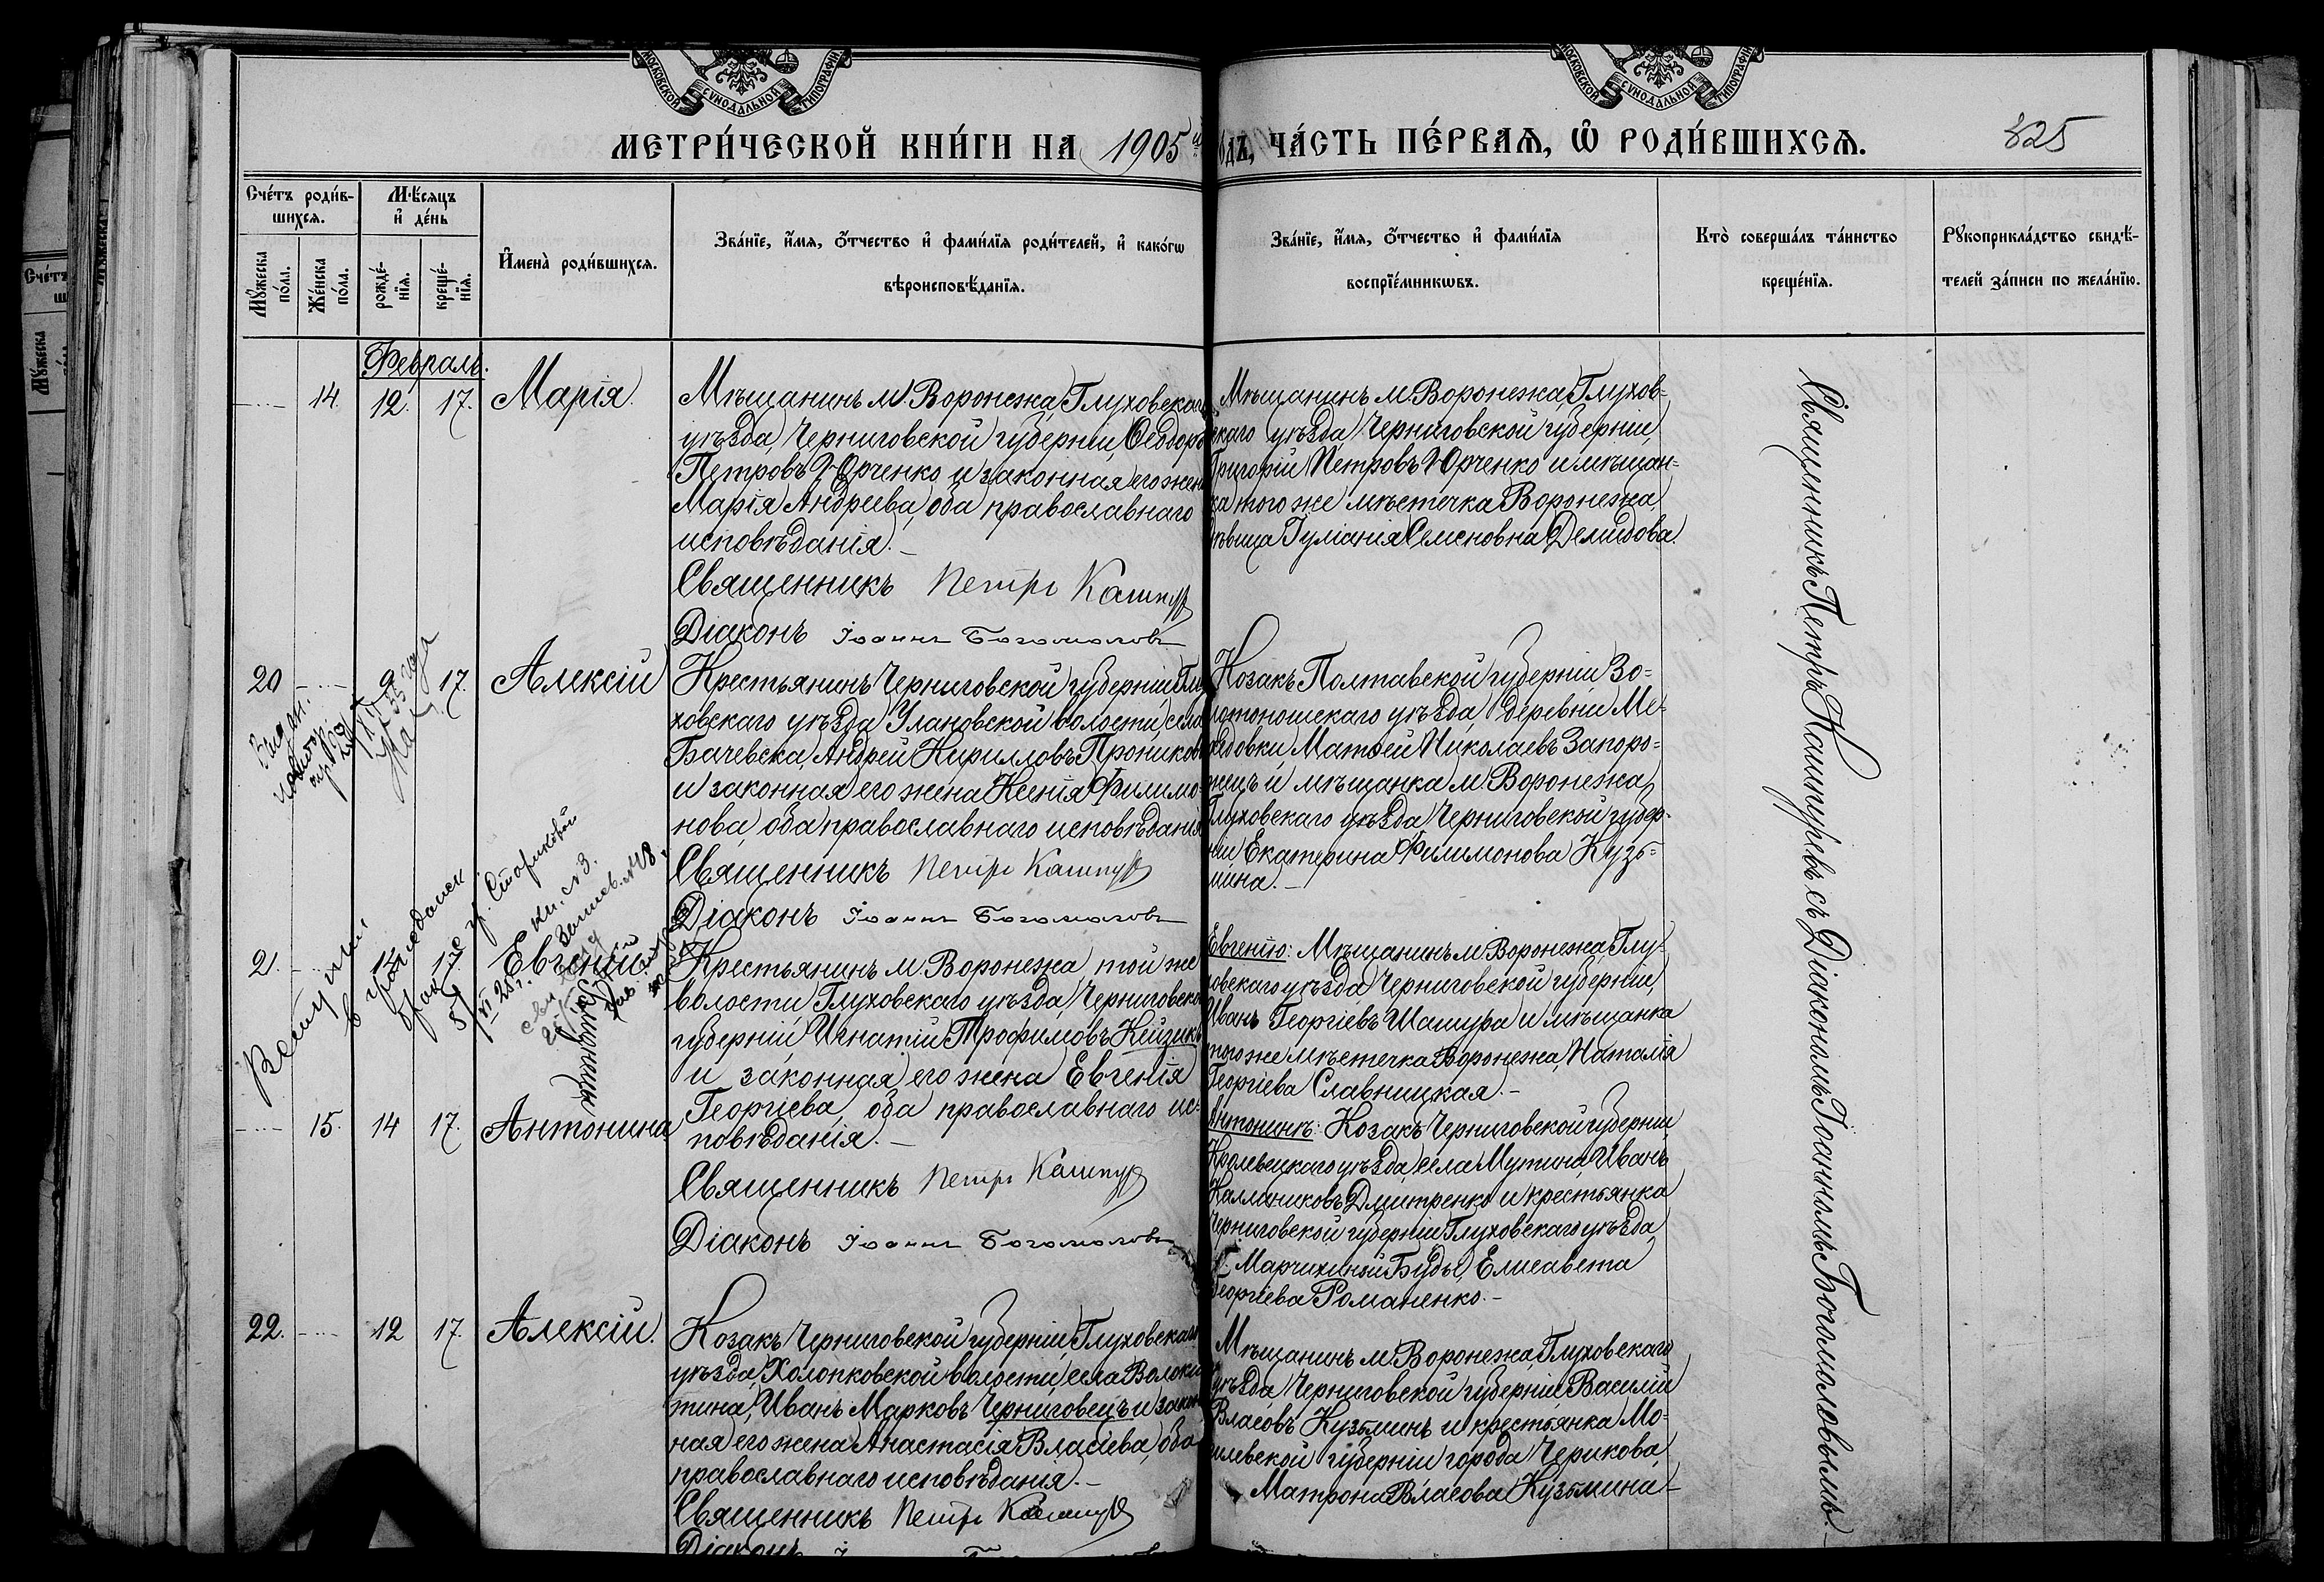 МОСКОВСКОЙ СѴНОДАЛЬНОЙ ТИПОГРАФІИ
МОСКОВСКОЙ СѴНОДАЛЬНОЙ ТИПОГРАФІИ
МЕТРИ́ЧЕСКОЙ КНИ́ГИ НА 1905 й
одъ, ЧА́СТЬ ПЕ́РВАѦ, Ѡ҆ РОДИ́ВШИХСѦ.
825
Сче́тъ роди́в-
шихсѧ.
Мꙋ́жеска по́ла.
Же́нска по́ла.
Мѣ́сяцъ
и҆ де́нь
рожде́-
нїѧ.
креще́-
нїѧ.
И҆мена̀ роди́вшихсѧ.
Зва́нїе, и҆́мѧ, ѻ҆́тчество и҆ фами́лїѧ роди́телей, и҆ како́гѡ
вѣроисповѣ́данїѧ.
Зва́нїе, и҆́мѧ, ѻ҆́тчество и҆ фами́лїѧ
воспрїе́мникѡвъ.
Кто̀ соверша́лъ та́инство
креще́нїѧ.
Рꙋкоприкла́дство свидѣ́-
телей за́писи по жела́нїю.
Февраль.
14. 12. 17. Марія.
Мѣщанинъ м. Воронежа, Глуховскаго
уѣзда, Черниговской губерніи, Ѳеодоръ
Петровъ Юрченко и законная его жена
Марія Андреева, оба православнаго
исповѣданія.–
Священникъ Петръ Кашпур
Діаконъ Іоаннъ Богомоловъ
Мѣщанинъ м. Воронежа, Глухов-
скаго уѣзда, Черниговской губерніи,
Григорій Петровъ Юрченко и мѣщан-
ка того же мѣстечка Воронежа,
дѣвица Іуліанія Семеновна Демидова.
20 9 17. Алексій
Крестьянинъ Черниговской губерніи, Глу
ховскаго уѣзда, Улановской волости, села
Бачевска, Андрей Кирилловъ Прониковъ
и законная его жена Ксенія Филимо-
нова, оба православнаго исповѣданія
Священникъ Петръ Кашпур
Діаконъ Іоаннъ Богомоловъ
Козакъ Полтавской губерніи, Зо-
лотоношскаго уѣзда, деревни Ме-
ховки, Матѳей Николаевъ Запоро-
жецъ и мѣщанка м. Воронежа,
Глуховскаго уѣзда, Черниговской губер-
ніи, Екатерина Филимонова Кузь-
мина.–
21. 14 17. Евгеній
близнецы
Крестьянинъ м. Воронежа, той же
волости, Глуховскаго уѣзда, Черниговской
губерніи, Игнатій Трофимовъ Кейзикъ
и законная его жена Евгенія
Георгіева, оба православнаго ис-
повѣданія.–
Священникъ Петръ Кашпур
Діаконъ Іоаннъ Богомоловъ
Евгенію: Мѣщанинъ м. Воронежа, Глу-
ховскаго уѣзда, Черниговской губерніи,
Иванъ Георгіевъ Шашура и мѣщанка
того же мѣстечка Воронежа, Наталія
Георгіева Славницкая.–
15. 14 17. Антонина
Антонинѣ: Козакъ Черниговской губерніи,
Кролевецкаго уѣзда, села Мутина, Иванъ
Каллиниковъ Дмитренко и крестьянка
Черниговской губерніи, Глуховскаго уѣзда,
Марчихиной Буды, Елисавета
Георгіева Романенко.–
22. 12 17. Алексій.
Козакъ Черниговской губерніи, Глуховскаго
уѣзда, Холопковской волости, села Волоки
тина, Иванъ Марковъ Черниговецъ и закон
ная его жена Анастасія Власіева, оба
православнаго исповѣданія.–
Священникъ Петръ Кашпур
Діаконъ
Мѣщанинъ м. Воронежа, Глуховскаго
уѣзда, Черниговской губерніи, Василій
Власовъ Кузьминъ и крестьянка Мо-
гилевской губерніи города Черикова,
Матрона Власова Кузьмина–
Священникъ Петръ Кашпуревъ съ Діакономъ Іоанномъ Богомоловымъ.–